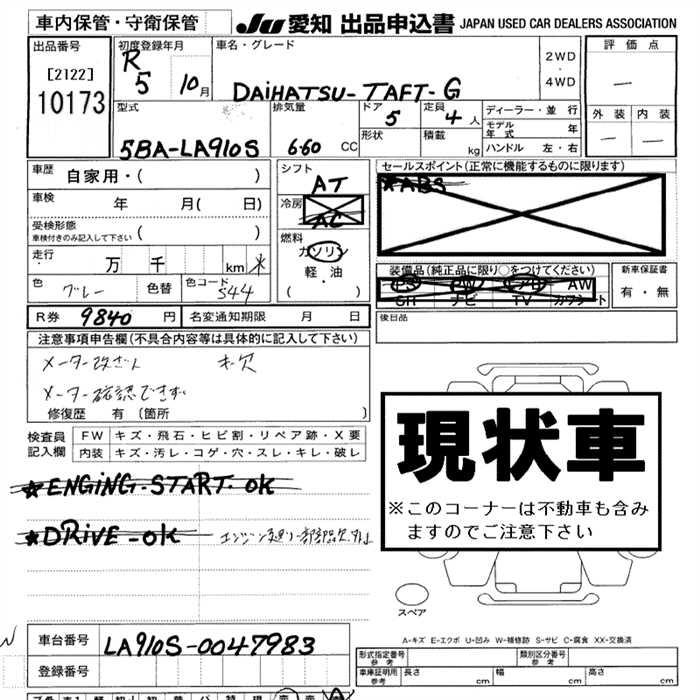 車内保管・守衛保管 JU 愛知 出品申込書 JAPAN USED CAR DEALERS ASSOCIATION
出品番号 初度登録年月 車名・グレード 2WD 評価点
[2122] R 5 10月 DAiHATSU-TAFT-G ・ 4WD —
10173 型式 排気量 ドア 定員 ディーラー・並行 外装 内装
5BA-LA910S 660 CC 5 4人 モデル年式 年 — —
形状 積載 kg ハンドル 左・右
車歴 自家用・( ) シフト AT セールスポイント(正常に機能するものに限ります)
車検 年 月( 日) 冷房 AC ★ABS
受検形態 ( )
車検付きのみ記入して下さい
燃料 ガソリン
走行 万 千 km 軽・油 装備品(純正品に限り○をつけてください) 新車保証書
色 グレー 色替 色コード 544 ( ・ ) PS PW エアB AW 有・無
SR ナビ TV カワシート
R券 9840 円 名変通知期限 月 日 後日品
注意事項申告欄(不具合内容等は具体的に記入して下さい)
メーター改ざん キー欠
メーター確認できず
修復歴 有(箇所 )
現状車
※このコーナーは不動車も含み
ますのでご注意下さい
検査員 FW キズ・飛石・ヒビ割・リペア跡・X要
記入欄 内装 キズ・汚レ・コゲ・穴・スレ・キレ・破レ
★ENGiNG-START-OK
★DRiVE-OK エンジン廻り一部部品欠外し
スペア
A-キズ E-エクボ U-凹み W-補修跡 S-サビ C-腐食 XX-交換済
車台番号 LA910S-0047983 形式指定番号 参考 類別区分番号 参考
登録番号 車庫証明用 参考 長さ cm 幅 cm 高さ cm